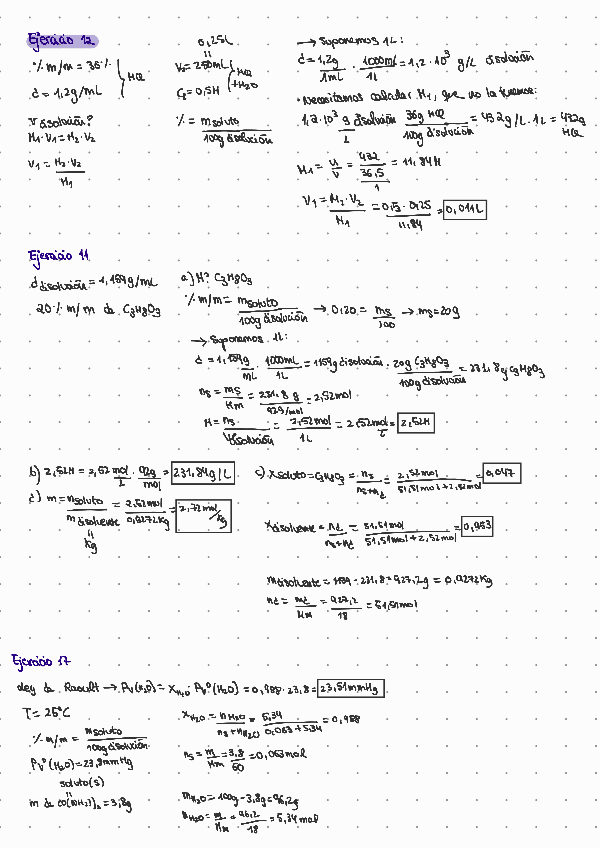 Ejercicio 12
% m/m = 36%
d = 1,2g/mL
HCl
V disolución?
M₁·V₁ = M₂·V₂
V₁ = M₂·V₂ / M₁
0,25L
V₂ = 250mL
C₂ = 0,5M
HCl + H₂O
% = m soluto / 100g disolución
→ Suponemos 1L:
d = 1,2g / 1mL · 1000ml / 1L = 1,2·10³ g/L disolución
· Necesitamos calcular M₁, que no la tenemos:
1,2·10³ g/L disolución · 36g HCl / 100g disolución = 432g/L · 1L = 432g HCl
M₁ = n/V = 432/36,5 / 1 = 11,84M
V₁ = M₂·V₂ / M₁ = 0,5·0,25 / 11,84 = 0,011L
Ejercicio 11
d disolución = 1,159g/mL
20% m/m de C₃H₈O₃
a) M? C₃H₈O₃
% m/m = m soluto / 100g disolución → 0,20 = ms / 100 → ms = 20g
→ Suponemos 1L:
d = 1,159g / mL · 1000mL / 1L = 1159g disolución · 20g C₃H₈O₃ / 100g disolución = 231,8g C₃H₈O₃
ns = ms / Mm = 231,8 g / 92g/mol = 2,52mol
M = ns / V disolución = 2,52mol / 1L = 2,52 mol/L = 2,52M
b) 2,52M = 2,52 mol/L · 92g / mol = 231,84g/L
c) X soluto = C₃H₈O₃ = ns / ns+nd = 2,52mol / 51,51mol+2,52mol = 0,047
X disolvente = nd / ns+nd = 51,51mol / 51,51mol+2,52mol = 0,953
m disolvente = 1159-231,8 = 927,2g = 0,9272Kg
nd = md / Mm = 927,2 / 18 = 51,51mol
d) m = n soluto / m disolvente = 2,52mol / 0,9272Kg = 2,72mol/Kg
Kg
Ejercicio 17
Ley de Raoult → Pv(H₂O) = X H₂O · Pv°(H₂O) = 0,988 · 23,8 = 23,51mmHg
T = 25°C
% m/m = m soluto / 100g disolución
Pv°(H₂O) = 23,8mmHg
soluto(s)
m de CO(NH₂)₂ = 3,8g
X H₂O = n H₂O / ns+nH₂O = 5,34 / 0,063+5,34 = 0,988
ns = m / Mm = 3,8 / 60 = 0,063mol
m H₂O = 100g-3,8g = 96,2g
n H₂O = m / Mm = 96,2 / 18 = 5,34mol